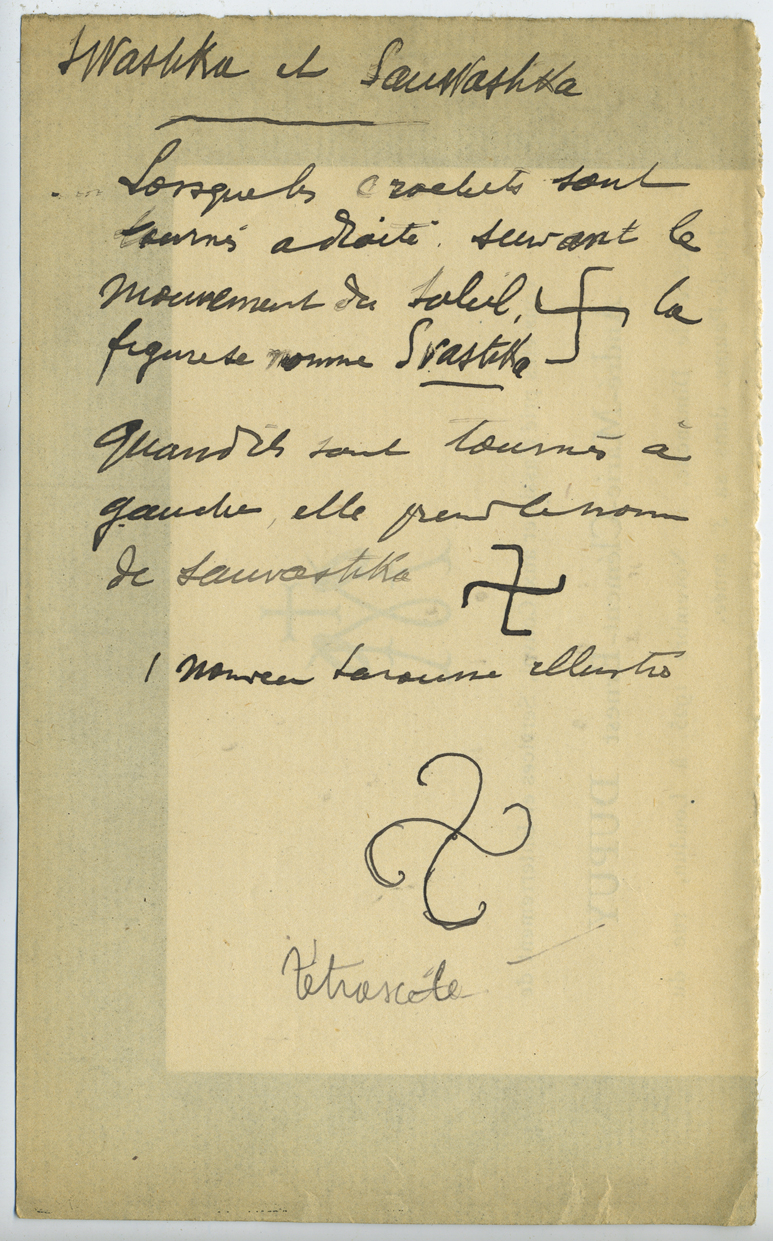 Swastika et Sauwastika
Lorsque les crochets sont
tournés a droite. suivant le
mouvement du soleil, la
figure se nomme Svastika
Quand ils sont tournés à
gauche, elle prend le nom
de sauvastika
( Nouveau Larousse illustré
Tétrascèle